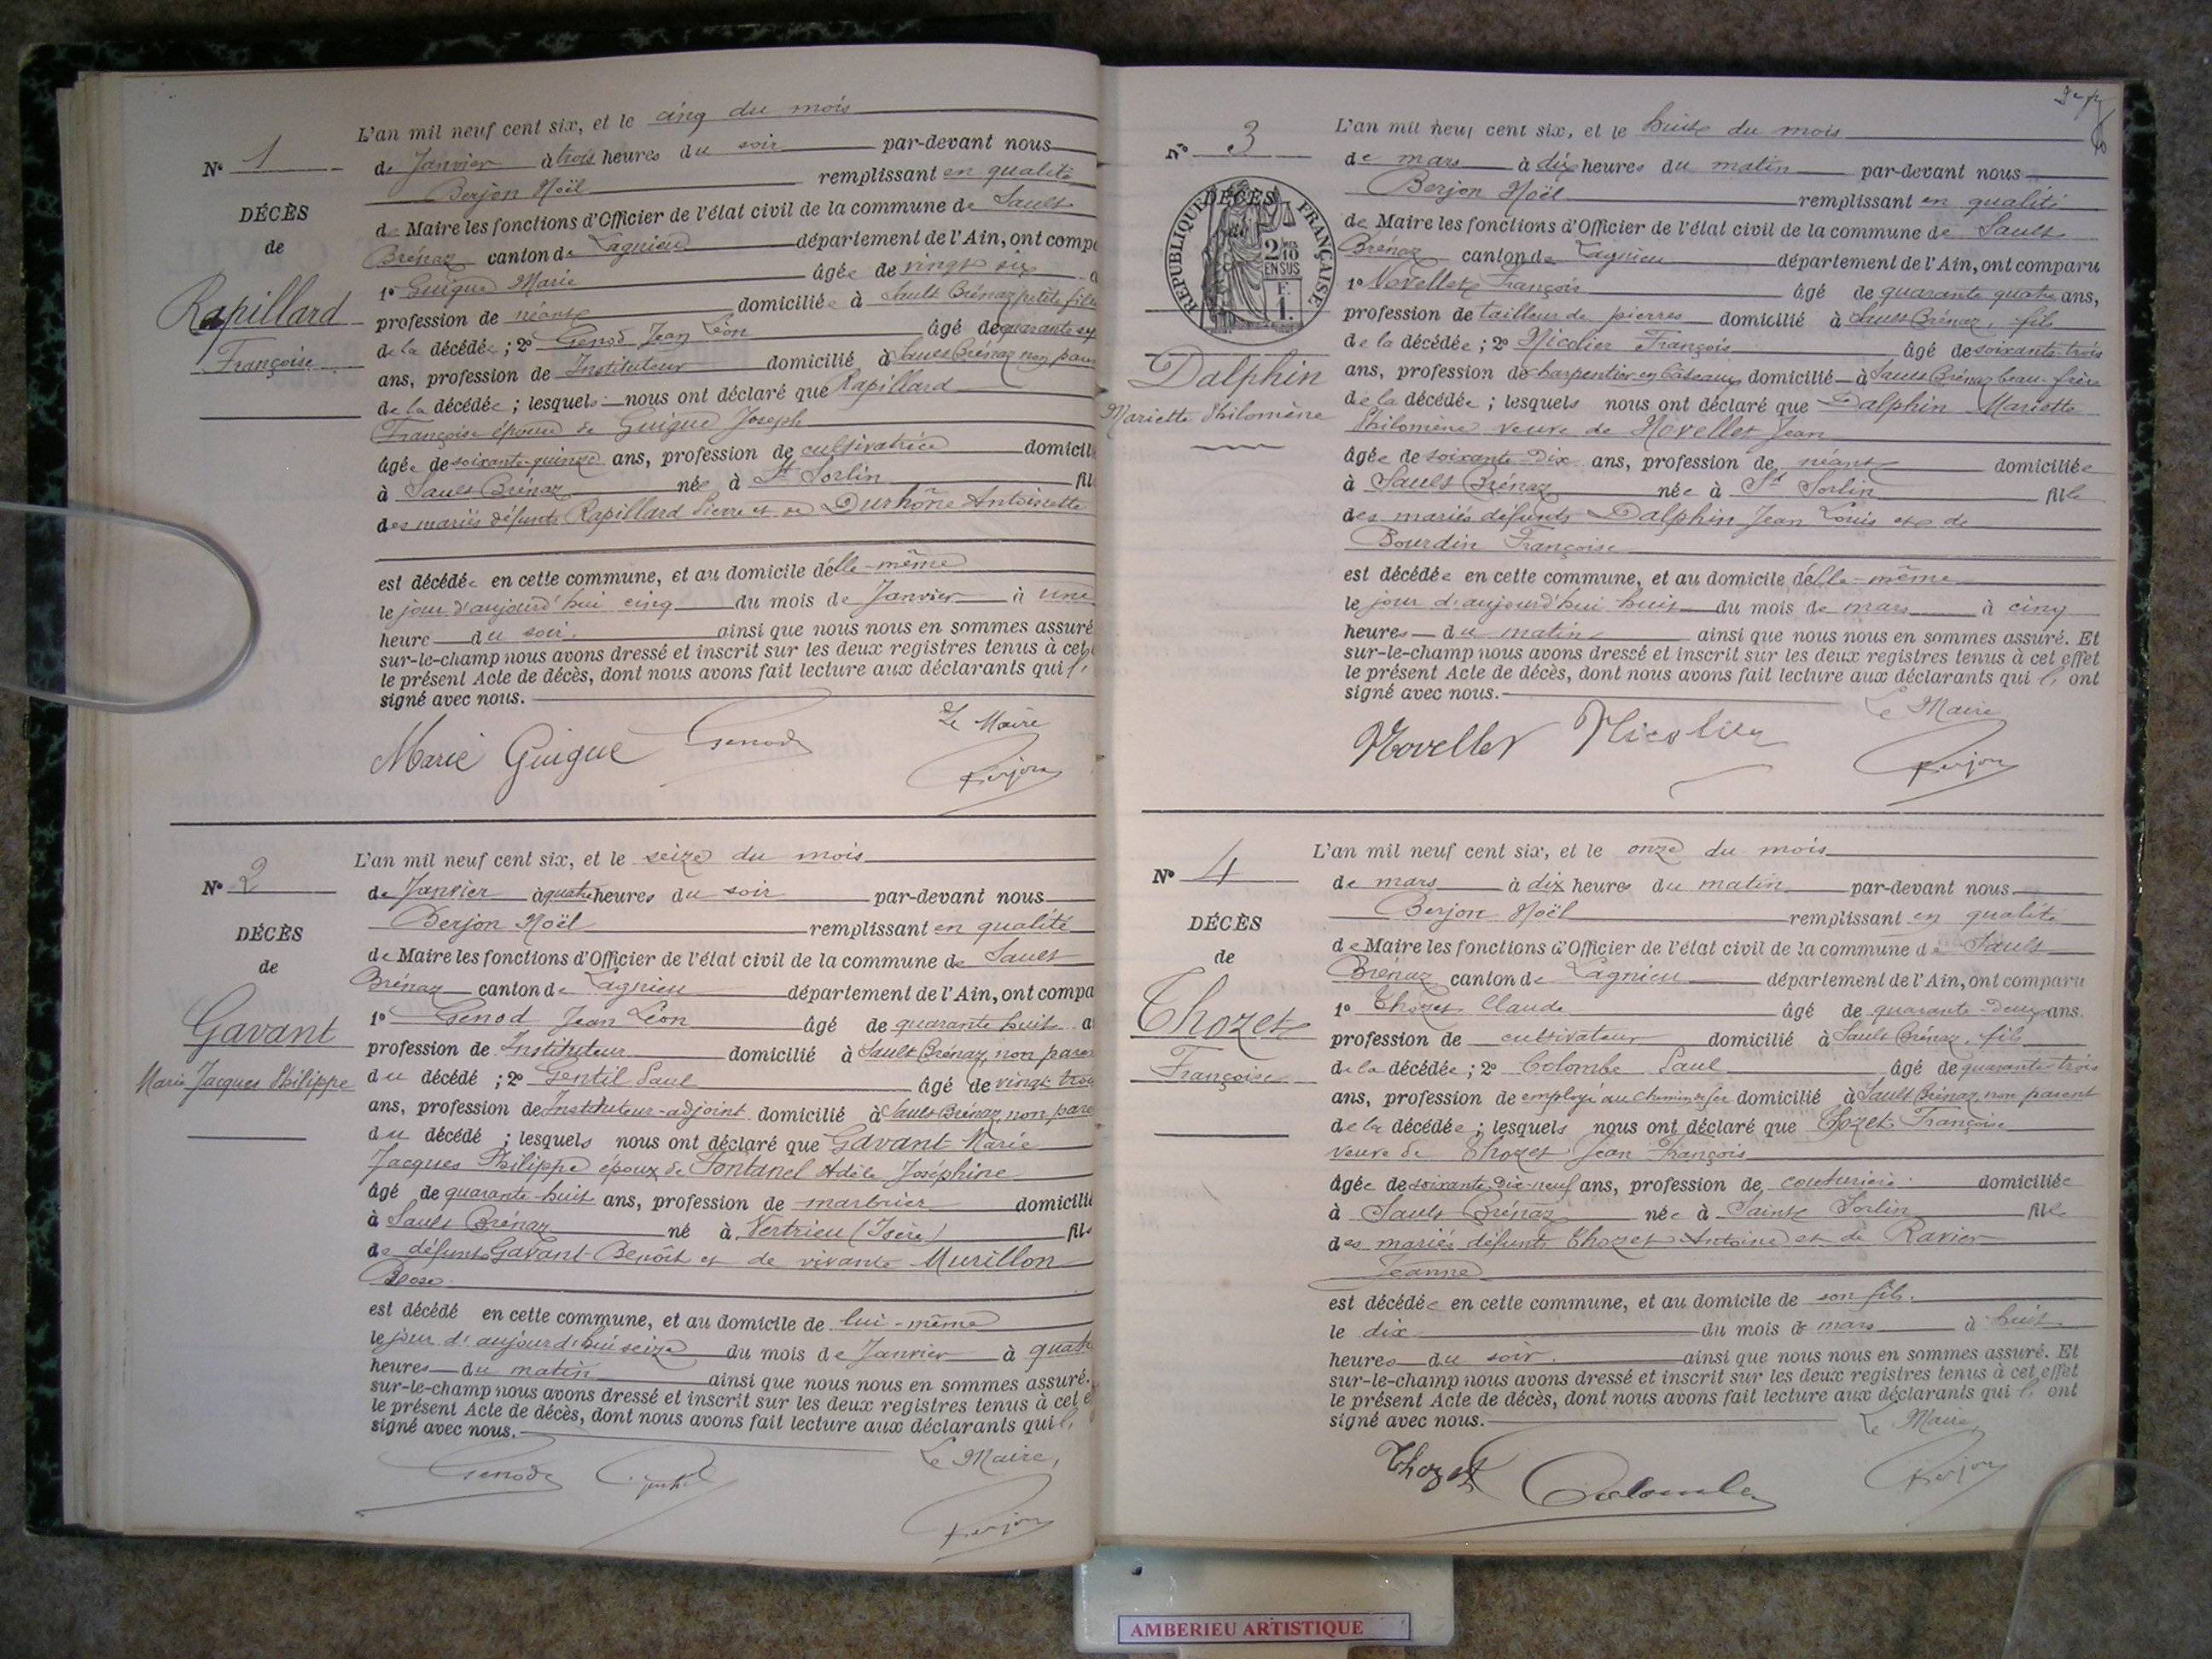 L'an mil neuf cent six, et le cinq du mois
N° 1
de Janvier à trois heures du soir par-devant nous
Berjon Noël remplissant en qualité
DÉCÈS
de Maire les fonctions d'Officier de l'état civil de la commune de Sault
de
Brénaz canton de Lagnieu département de l'Ain, ont comp
1° Guigue Marie âgée de vingt six
Rapillard
profession de néant domiciliée à Sault Brénaz petite fille
de la décédée ; 2° Genod Jean Léon âgé de quarante
Françoise
ans, profession de Instituteur domicilié à Sault Brénaz non paren
de la décédée ; lesquels nous ont déclaré que Rapillard
Françoise épouse de Guigue Joseph
âgée de soixante-quinze ans, profession de cultivatrice domicil
à Sault Brénaz née à St Sorlin fil
des mariés défunts Rapillard Pierre et de Durhône Antoinette
est décédée en cette commune, et au domicile d'elle-même
le jour d'aujourd'hui cinq du mois de Janvier à une
heure du soir. ainsi que nous nous en sommes assuré
sur-le-champ nous avons dressé et inscrit sur les deux registres tenus à cet
le présent Acte de décès, dont nous avons fait lecture aux déclarants qui l'
signé avec nous.
Le Maire
Marie Guigue Genod
Berjon
L'an mil neuf cent six, et le seize du mois
N° 2
de Janvier à quatre heures du soir par-devant nous
Berjon Noël remplissant en qualité
DÉCÈS
de Maire les fonctions d'Officier de l'état civil de la commune de Sault
de
Brénaz canton de Lagnieu département de l'Ain, ont compa
1° Genod Jean Léon âgé de quarante huit a
Gavant
profession de Instituteur domicilié à Sault Brénaz, non paren
Marie Jacques Philippe
du décédé ; 2° Gentil Paul âgé de vingt trois
ans, profession de Instituteur-adjoint domicilié à Sault Brénaz, non pare
du décédé ; lesquels nous ont déclaré que Gavant Marie
Jacques Philippe époux de Fontanel Adèle Joséphine
âgé de quarante-huit ans, profession de marbrier domicilié
à Sault Brénaz né à Vertrieu (Isère) fils
de défunt Gavant Benoît et de vivante Murillon
Rose
est décédé en cette commune, et au domicile de lui-même
le jour d'aujourd'hui seize du mois de Janvier à quatre
heures du matin ainsi que nous nous en sommes assuré.
sur-le-champ nous avons dressé et inscrit sur les deux registres tenus à cet e
le présent Acte de décès, dont nous avons fait lecture aux déclarants qui l'
signé avec nous.
Le Maire,
Genod Gentil
Berjon
L'an mil neuf cent six, et le huit du mois
N° 3
de mars à dix heures du matin par-devant nous
Berjon Noël remplissant en qualité
DÉCÈS
RÉPUBLIQUE FRANÇAISE
2/10 EN SUS
F.
1.
de Maire les fonctions d'Officier de l'état civil de la commune de Sault
Brénaz canton de Lagnieu département de l'Ain, ont comparu
1° Novellet François âgé de quarante quatre ans,
profession de tailleur de pierres domicilié à Sault Brénaz, fils
de la décédée ; 2° Nicolier François âgé de soixante-trois
Dalphin
ans, profession de charpentier en bateaux domicilié à Sault Brénaz beau-frère
Mariette Philomène
de la décédée ; lesquels nous ont déclaré que Dalphin Mariette
Philomène veuve de Novellet Jean
âgée de soixante-dix ans, profession de néant domiciliée
à Sault Brénaz née à St Sorlin fille
des mariés défunts Dalphin Jean Louis et de
Bourdin Françoise
est décédée en cette commune, et au domicile d'elle-même
le jour d'aujourd'hui huit du mois de mars à cinq
heures du matin ainsi que nous nous en sommes assuré. Et
sur-le-champ nous avons dressé et inscrit sur les deux registres tenus à cet effet
le présent Acte de décès, dont nous avons fait lecture aux déclarants qui l' ont
signé avec nous.
Le Maire
Novellet Nicolier
Berjon
L'an mil neuf cent six, et le onze du mois
N° 4
de mars à dix heures du matin par-devant nous
Berjon Noël remplissant en qualité
DÉCÈS
de Maire les fonctions d'Officier de l'état civil de la commune de Sault
de
Brénaz canton de Lagnieu département de l'Ain, ont comparu
1° Thozet Claude âgé de quarante-deux ans.
Thozet
profession de cultivateur domicilié à Sault Brénaz, fils
Françoise
de la décédée ; 2° Colombe Paul âgé de quarante-trois
ans, profession de employé au chemin de fer domicilié à Sault Brénaz, non parent
de la décédée ; lesquels nous ont déclaré que Thozet Françoise
veuve de Thozet Jean François
âgée de soixante-dix-neuf ans, profession de couturière domiciliée
à Sault Brénaz née à Saint Sorlin fille
des mariés défunts Thozet Antoine et de Ravier
Jeanne
est décédée en cette commune, et au domicile de son fils.
le dix du mois de mars à huit
heures du soir. ainsi que nous nous en sommes assuré. Et
sur-le-champ nous avons dressé et inscrit sur les deux registres tenus à cet effet
le présent Acte de décès, dont nous avons fait lecture aux déclarants qui l' ont
signé avec nous.
Le Maire,
Thozet Colombe
Berjon
AMBERIEU ARTISTIQUE